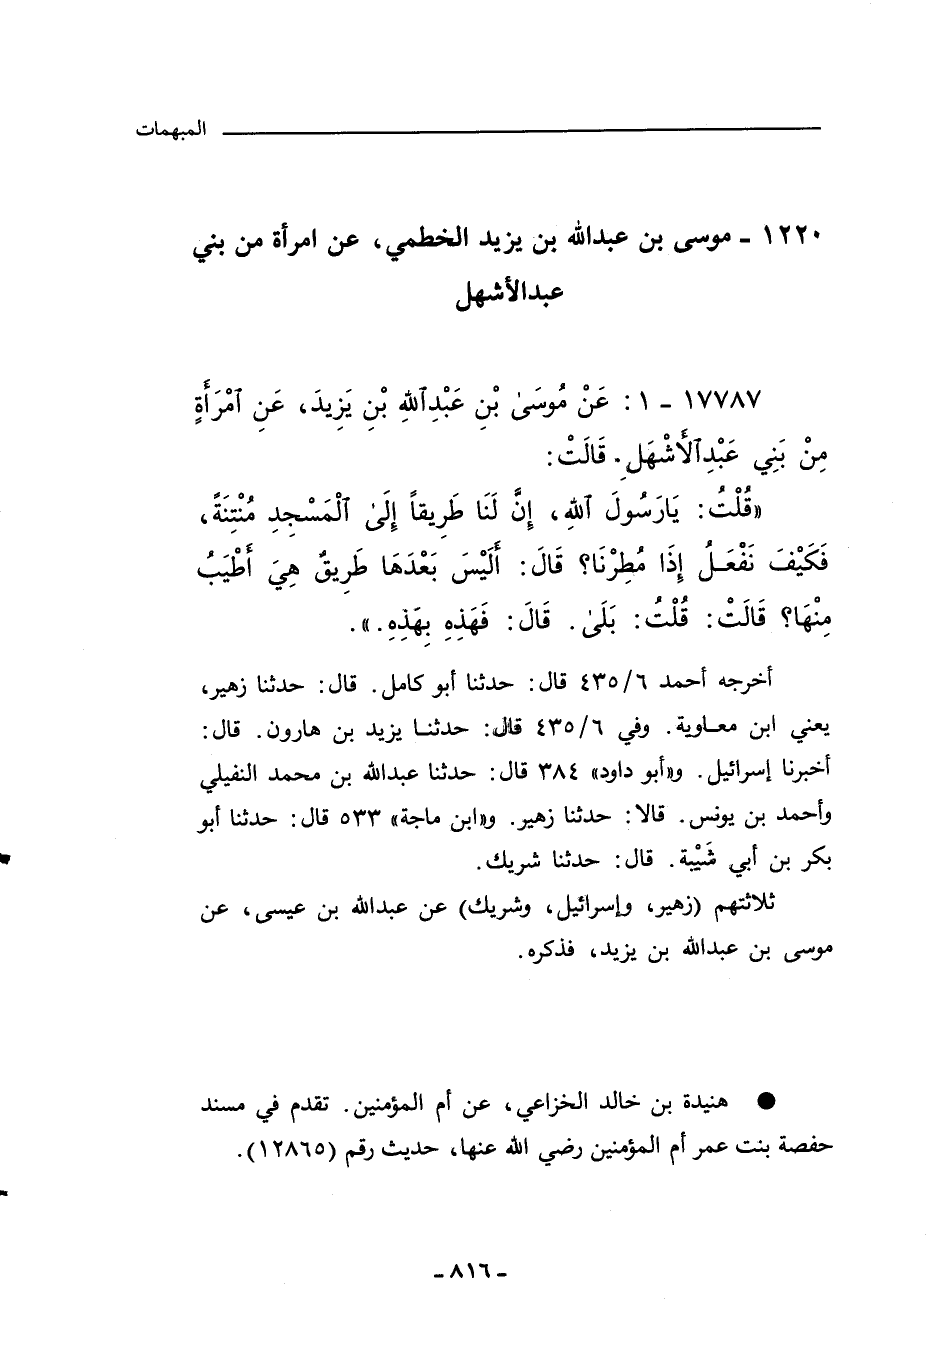 المبهمات
١٢٢٠ - موسى بن عبدالله بن يزيد الخطمي، عن امرأة من بني
عبدالأشهل
١٧٧٨٧ - ١ : عَنْ مُوسَىٰ بْنِ عَبْدِٱللهِ بْنِ يَزِيدَ، عَنِ ٱمْرَأَةٍ
مِنْ بَنِي عَبْدِٱلْأَشْهَلِ. قَالَتْ:
«قُلْتُ: يَارَسُولَ ٱللهِ، إِنَّ لَنَا طَرِيقاً إِلَىٰ ٱلْمَسْجِدِ مُنْتِنَةً،
فَكَيْفَ نَفْعَلُ إِذَا مُطِرْنَا؟ قَالَ: أَلَيْسَ بَعْدَهَا طَرِيقٌ هِيَ أَطْيَبُ
مِنْهَا؟ قَالَتْ: قُلْتُ: بَلَىٰ. قَالَ: فَهَذِهِ بِهَذِهِ.».
أخرجه أحمد ٤٣٥/٦ قال: حدثنا أبو كامل. قال: حدثنا زهير،
يعني ابن معاوية. وفي ٤٣٥/٦ قال: حدثنا يزيد بن هارون. قال:
أخبرنا إسرائيل. و«أبو داود» ٣٨٤ قال: حدثنا عبدالله بن محمد النفيلي
وأحمد بن يونس. قالا: حدثنا زهير. و«ابن ماجة» ٥٣٣ قال: حدثنا أبو
بكر بن أبي شَيْبة. قال: حدثنا شريك.
ثلاثتهم (زهير، وإسرائيل، وشريك) عن عبدالله بن عيسى، عن
موسى بن عبدالله بن يزيد، فذكره.
● هنيدة بن خالد الخزاعي، عن أم المؤمنين. تقدم في مسند
حفصة بنت عمر أم المؤمنين رضي الله عنها، حديث رقم (١٢٨٦٥).
- ٨١٦ -